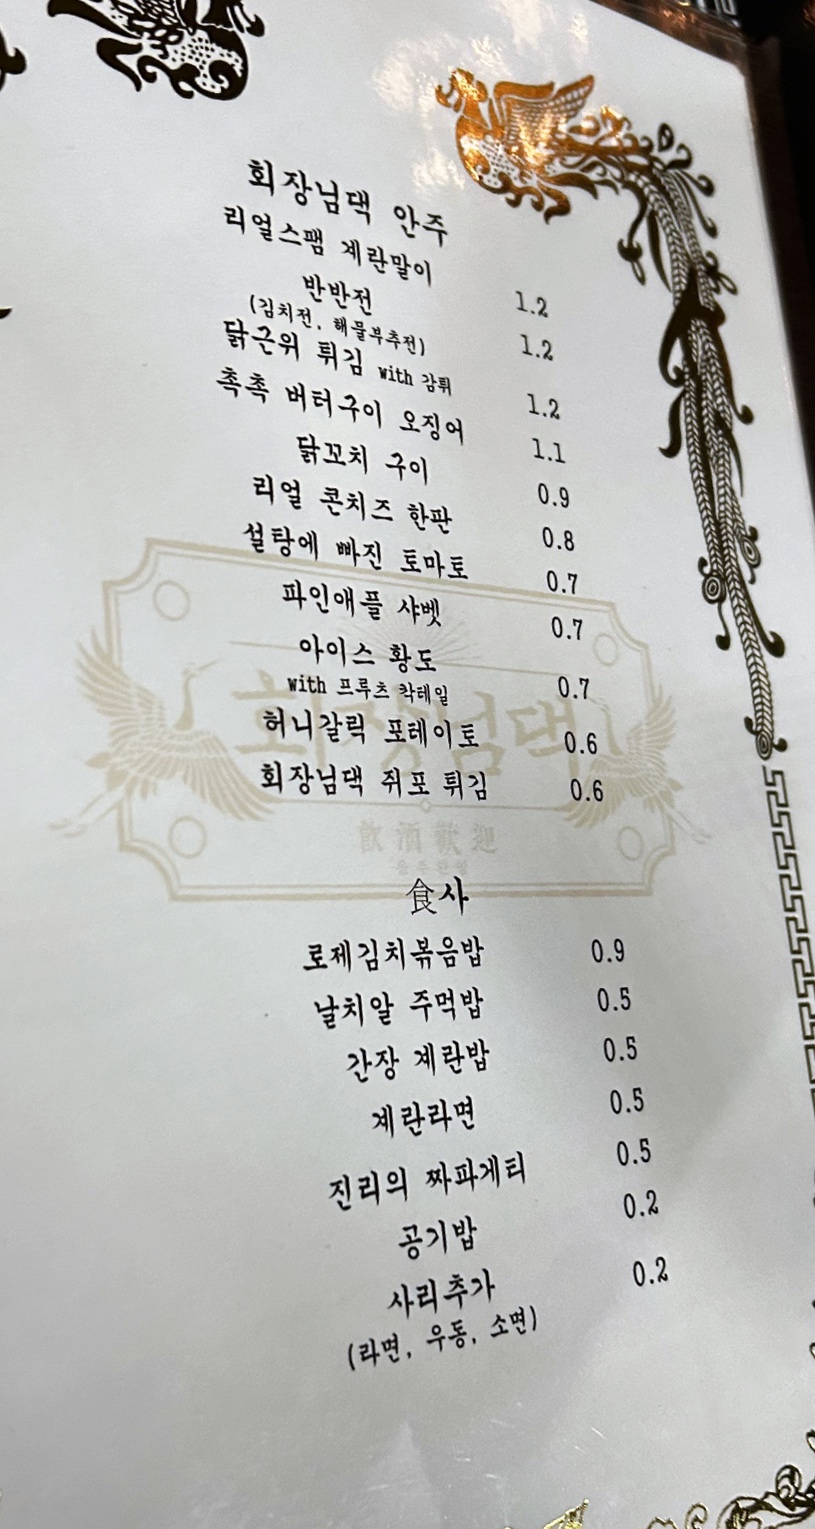 회장님댁 안주
리얼스팸 계란말이 1.2
반반전 1.2
(김치전, 해물부추전)
닭근위 튀김 with 감튀 1.2
촉촉 버터구이 오징어 1.1
닭꼬치 구이 0.9
리얼 콘치즈 한판 0.8
설탕에 빠진 토마토 0.7
파인애플 샤벳 0.7
아이스 황도 0.7
with 프루츠 칵테일
허니갈릭 포테이토 0.6
회장님댁 쥐포 튀김 0.6
회장님댁
飮酒歡迎
食사
로제김치볶음밥 0.9
날치알 주먹밥 0.5
간장 계란밥 0.5
계란라면 0.5
진리의 짜파게티 0.5
공기밥 0.2
사리추가 0.2
(라면, 우동, 소면)